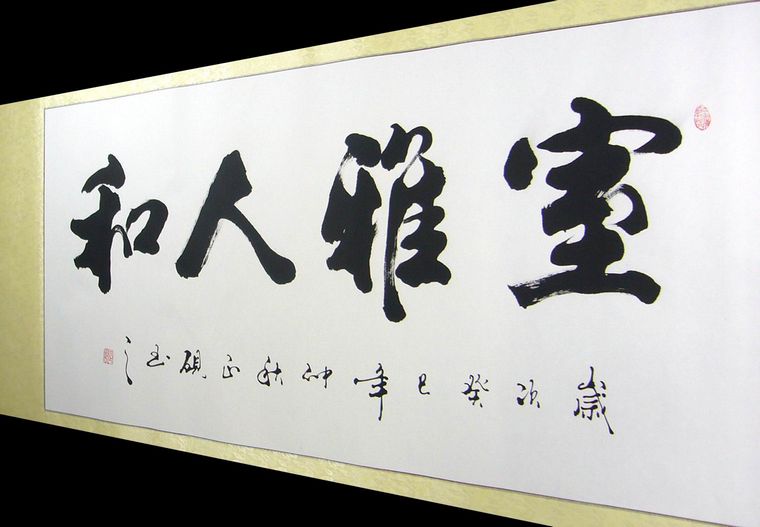 室雅人和
歲次癸巳年仲秋正硯書之